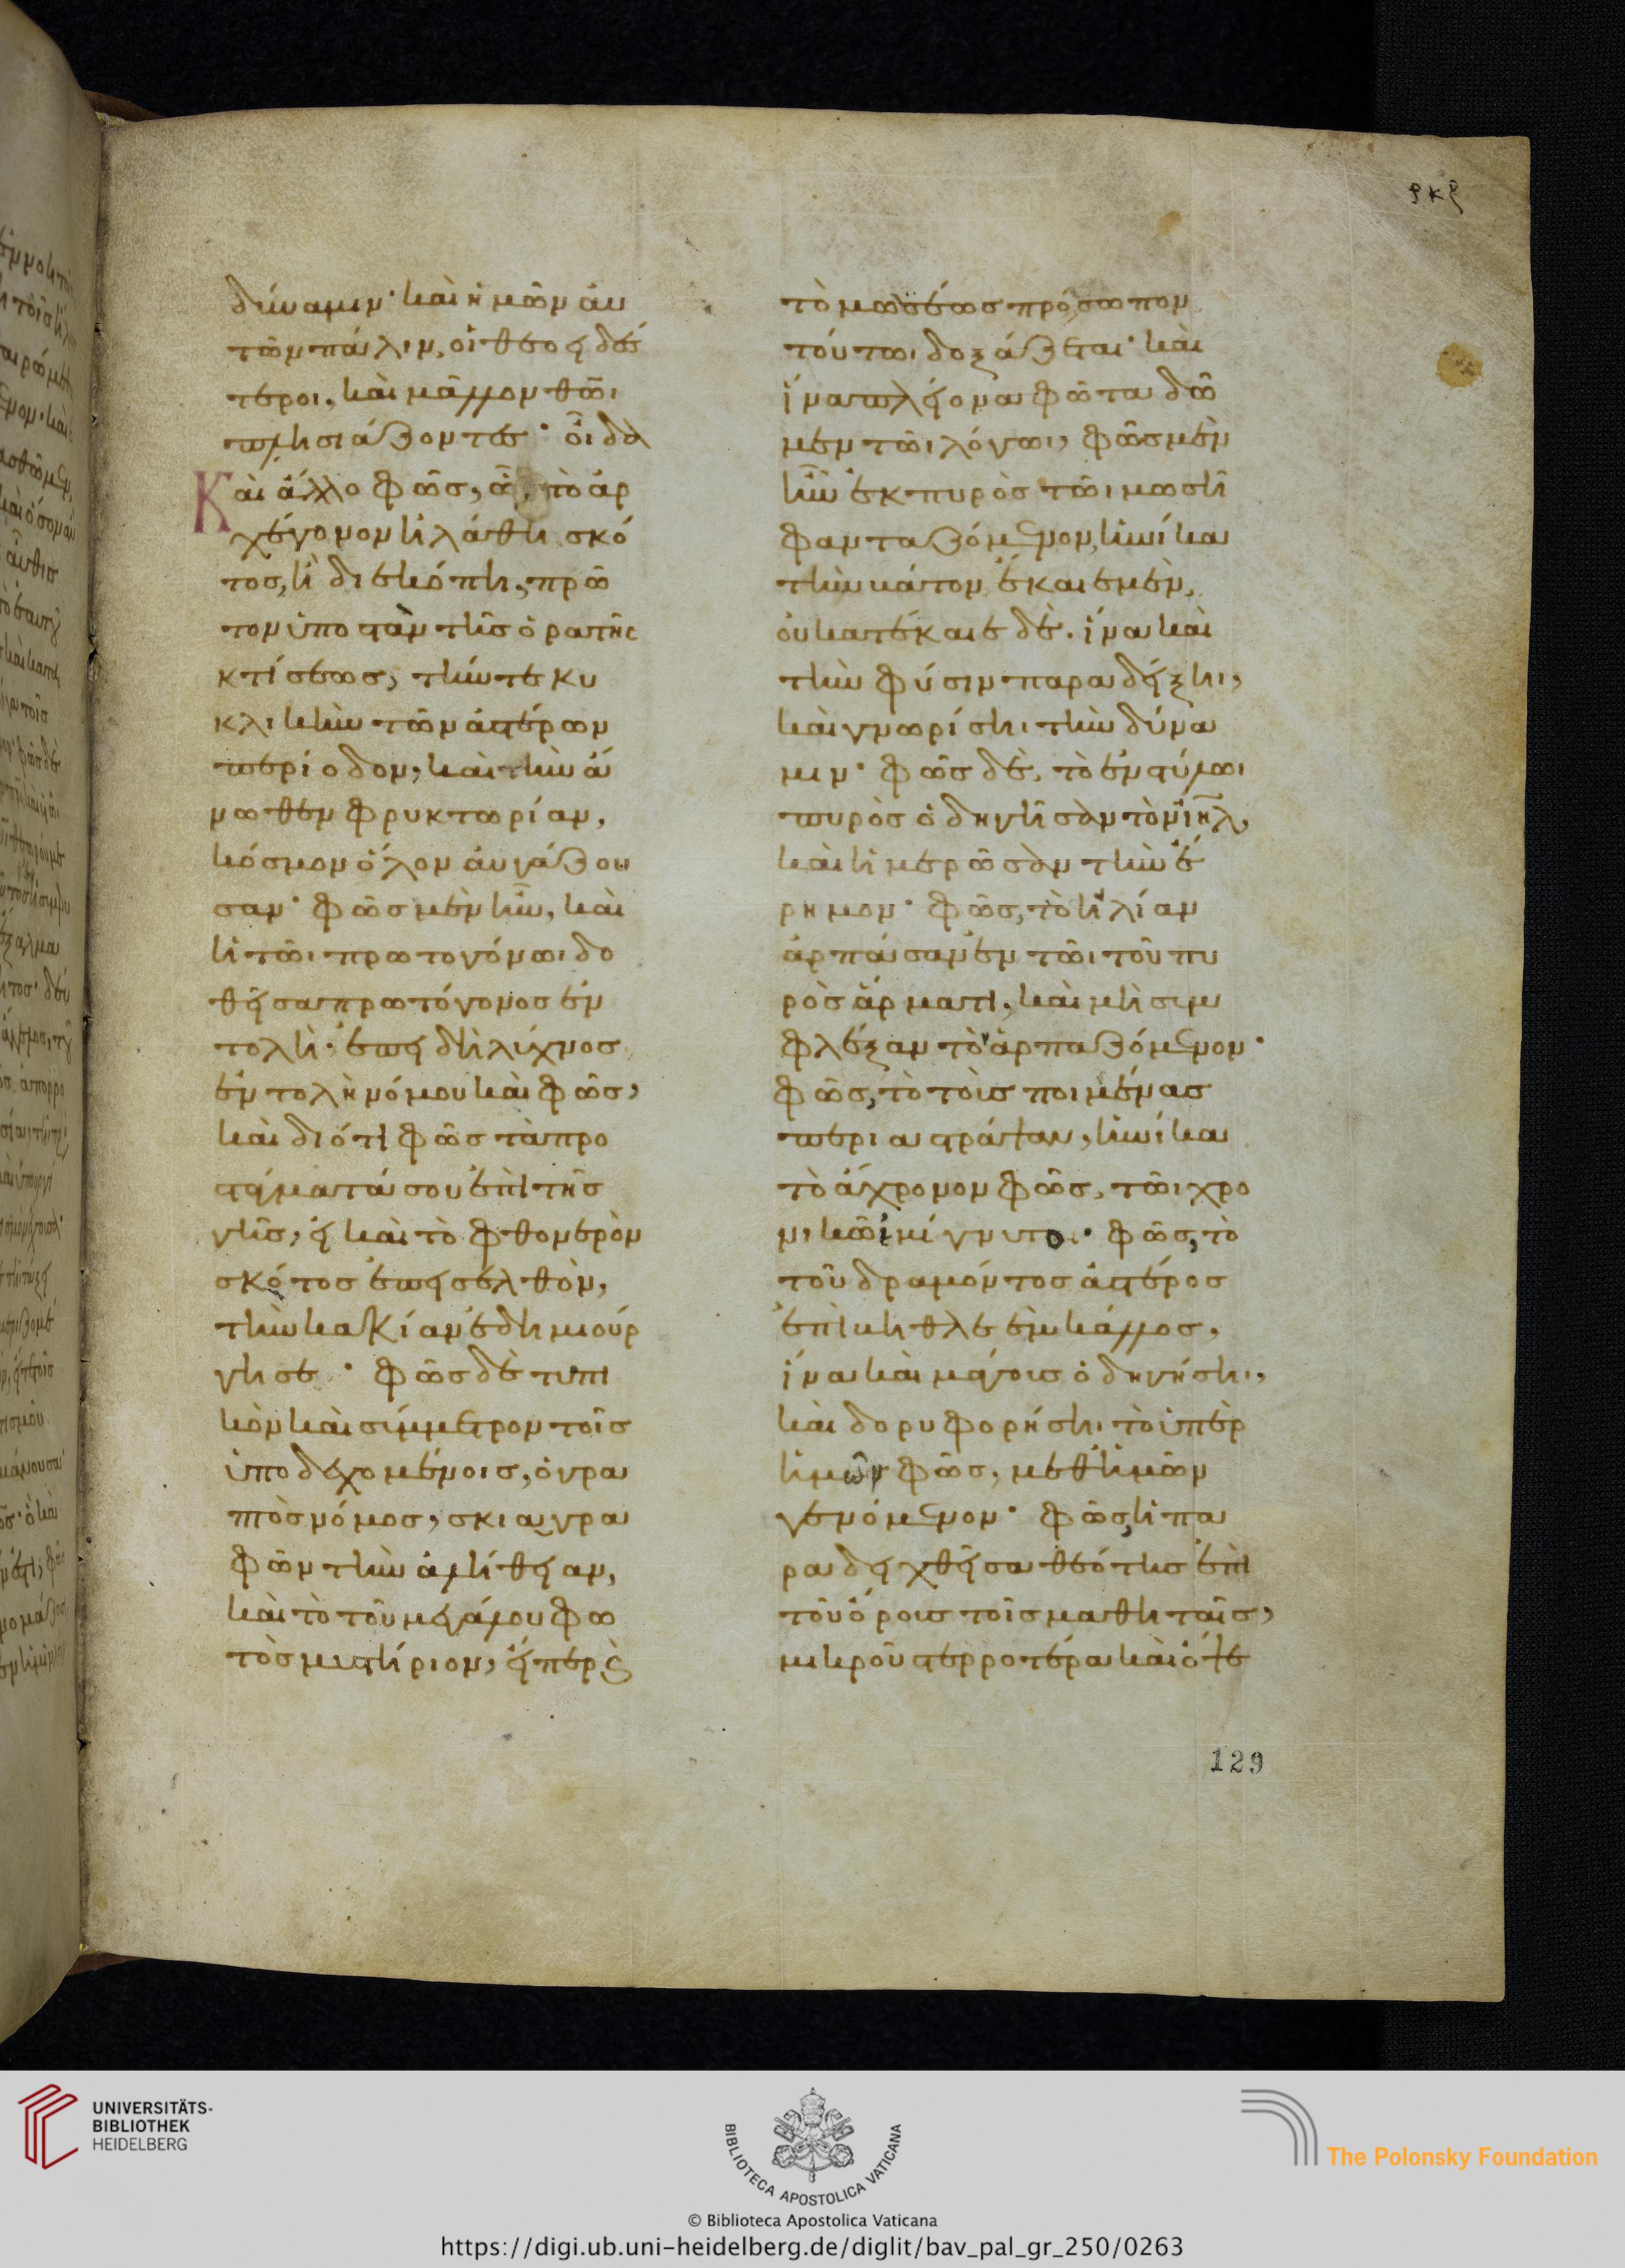 ρκθ
δύναμιν· καὶ ἡμῶν αὐ
τῶν πάλιν, οἱ θεοειδέσ
τεροι, καὶ μᾶλλον θῶι
πλησιάζοντες· οἶδα
Καὶ ἄλλο φῶς, ὧι τὸ ἀρ
χέγονον ἠλάθη σκό
τος, ἢ διεκόπη, πρῶ
τον ὑποστὰν τῆς ὁρατῆς
κτίσεως, τήν τε κυ
κλικὴν τῶν ἀστέρων
περίοδον, καὶ τὴν ἄ
νωθεν φρυκτωρίαν,
κόσμον ὅλον αὐγάζου
σαν· φῶς μὲν ἦν, καὶ
ἡ τῶι πρωτογόνωι δο
θεῖσα πρωτόγονος ἐν
τολὴ· ἐπειδὴ λύχνος
ἐντολὴ νόμου καὶ φῶς,
καὶ διότι φῶς τὰ προ
στάγματά σου ἐπὶ τῆς
γῆς, εἰ καὶ τὸ φθονερὸν
σκότος ἐπεισελθὸν,
τὴν κακίαν ἐδημιούρ
γησε· φῶς δὲ τυπι
κὸν καὶ σύμμετρον τοῖς
ὑποδεχομένοις, ὁ γρα
πτὸς νόμος, σκιαγρα
φῶν τὴν ἀλήθειαν,
καὶ τὸ τοῦ μεγάλου φω
τὸς μυστήριον, εἴπερ ϛ
τὸ μωϋσέως πρόσωπον
τούτωι δοξάζεται· καὶ
ἵνα πλείονα φῶτα δῶ
μεν τῶι λόγωι, φῶς μὲν
ἦν ἐκ πυρὸς τῶι μωσῆ
φανταζόμενον, ἡνίκα
τὴν βάτον ἔκαιε μὲν,
οὐ κατέκαιε δέ. ἵνα καὶ
τὴν φύσιν παραδείξηι,
καὶ γνωρίσηι τὴν δύνα
μιν· φῶς δὲ, τὸ ἐν στύλωι
πυρὸς ὁδηγῆσαν τὸν ἰηλ,
καὶ ἡμερῶσαν τὴν ἔ
ρημον· φῶς, τὸ ἠλίαν
ἁρπάσαν ἐν τῶι τοῦ πυ
ρὸς ἅρματι, καὶ μὴ συμ
φλέξαν τὸν ἁρπαζόμενον·
φῶς, τὸ τοὺς ποιμένας
περιαστράψαν, ἡνίκα
τὸ ἄχρονον φῶς, τῶι χρο
νικῶι ἐμίγνυτο· φῶς, τὸ
τοῦ δραμόντος ἀστέρος
ἐπὶ βηθλεὲμ κάλλος,
ἵνα καὶ μάγους ὁδηγήσηι,
καὶ δορυφορήσηι τὸ ὑπὲρ
ἡμῶν φῶς, μεθ ἡμῶν
γενόμενον· φῶς, ἡ πα
ραδειχθεῖσα θεότης ἐπὶ
τοῦ ὄρους τοῖς μαθηταῖς,
μικροῦ στερροτέρα καὶ ὄψε
129
UNIVERSITÄTS-
BIBLIOTHEK
HEIDELBERG
BIBLIOTECA APOSTOLICA VATICANA
The Polonsky Foundation
© Biblioteca Apostolica Vaticana
https://digi.ub.uni-heidelberg.de/diglit/bav_pal_gr_250/0263